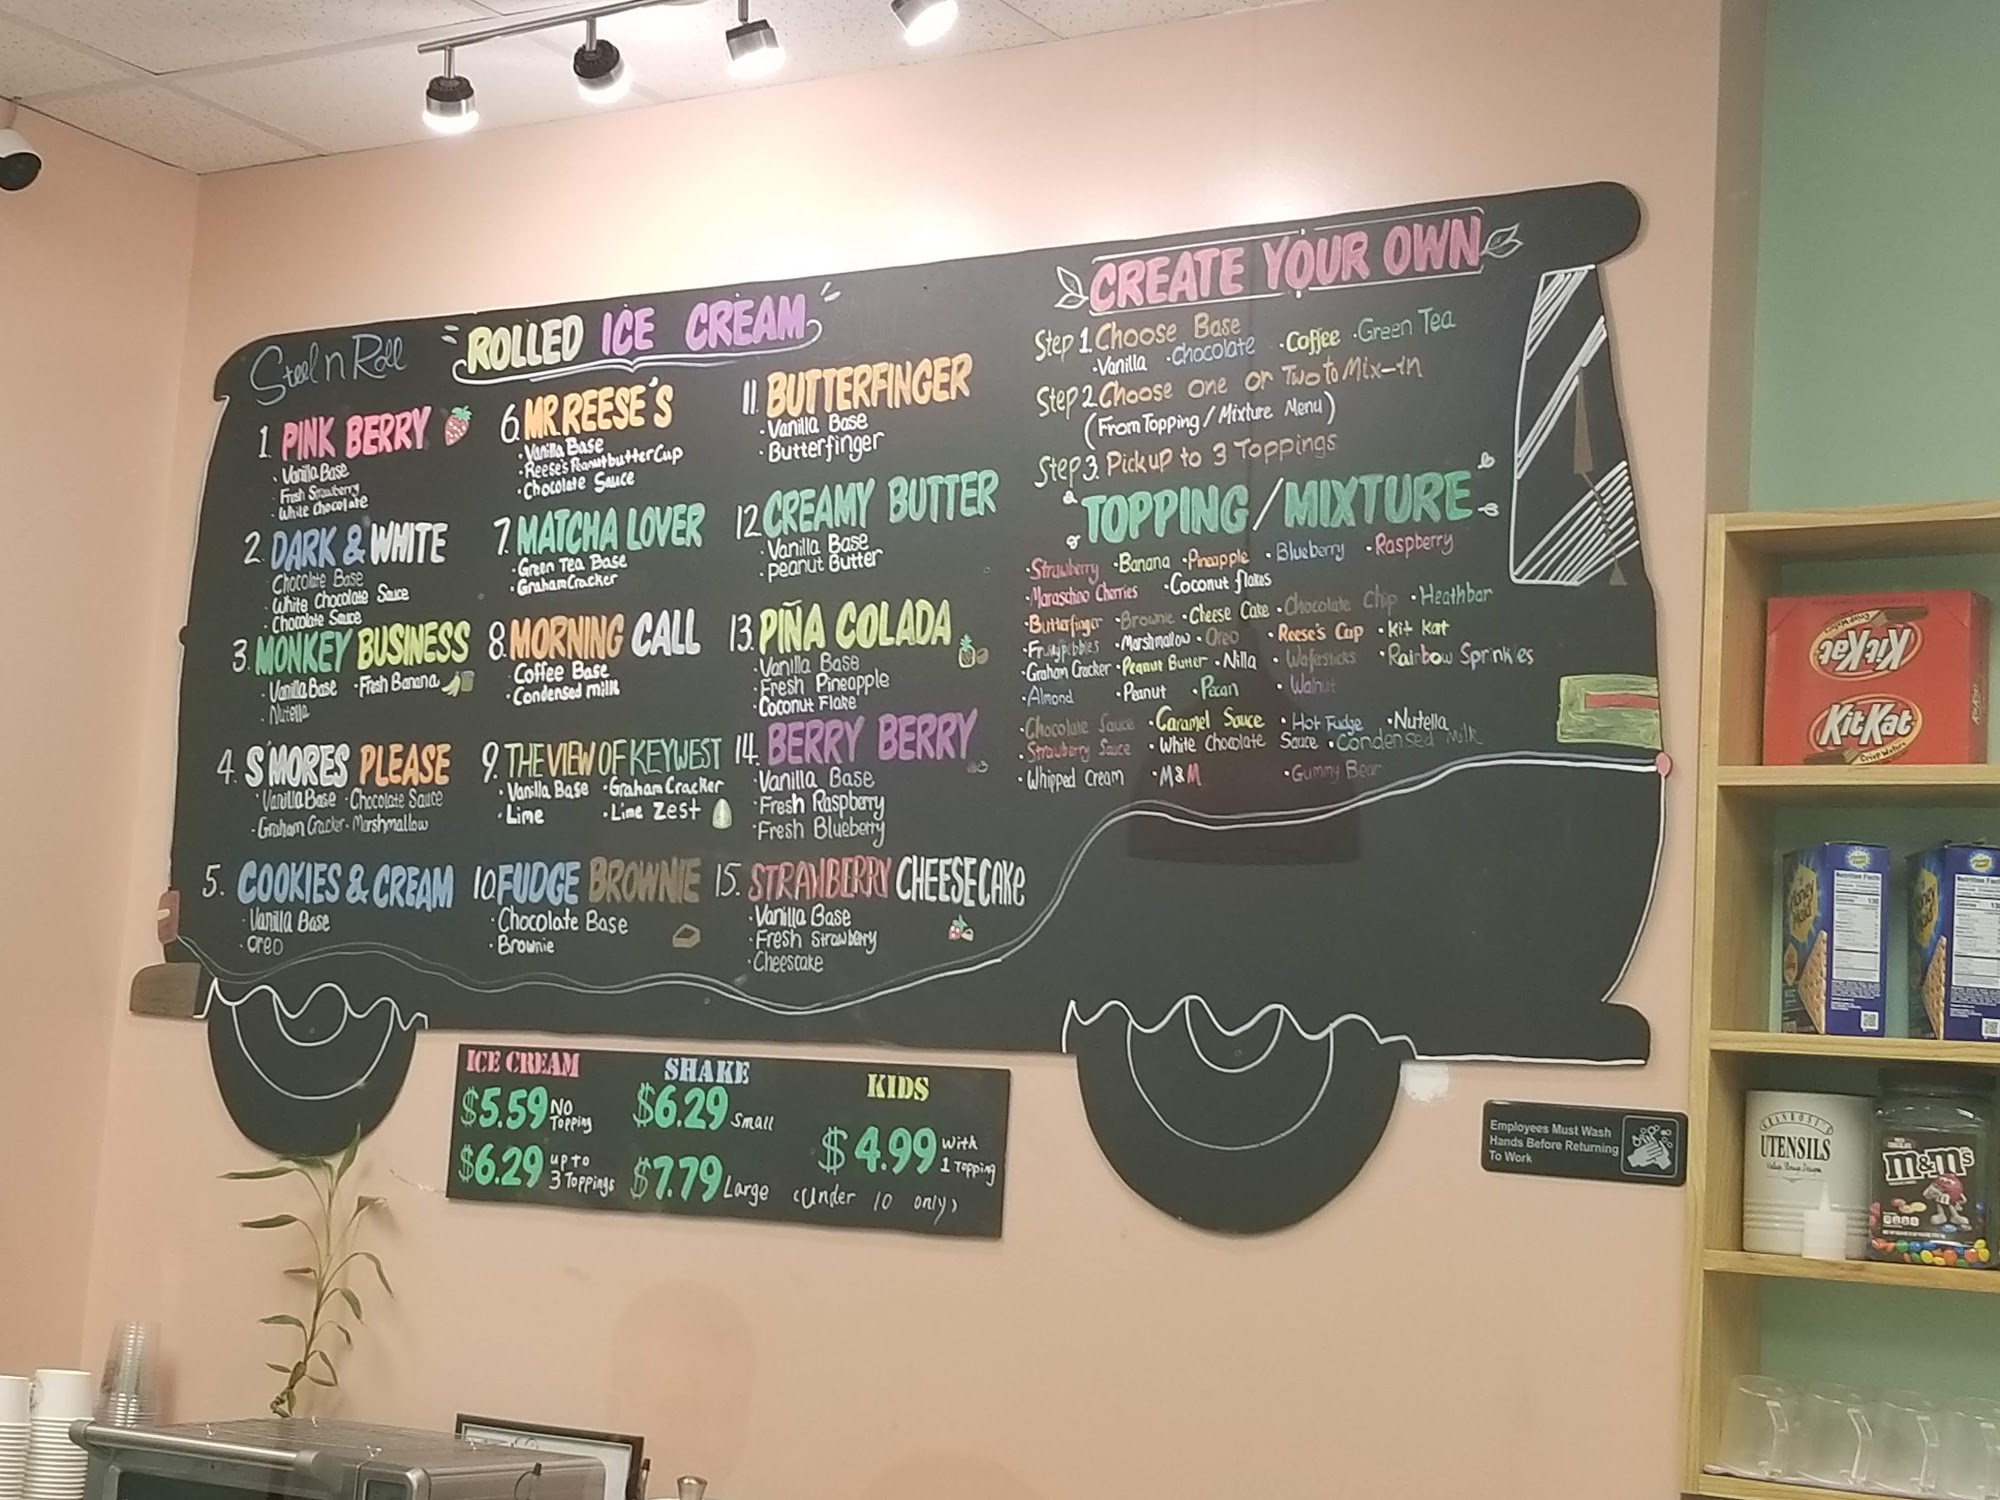 Steel n Roll
ROLLED ICE CREAM
1. PINK BERRY
· Vanilla Base
· Fresh Strawberry
· White Chocolate
2. DARK & WHITE
Chocolate Base
· White Chocolate Sauce
· Chocolate Sauce
3. MONKEY BUSINESS
· Vanilla Base · Fresh Banana
· Nutella
4. S'MORES PLEASE
· Vanilla Base · Chocolate Sauce
· Graham Cracker · Marshmallow
5. COOKIES & CREAM
· Vanilla Base
· Oreo
6. MR. REESE'S
· Vanilla Base
· Reese's Peanutbutter Cup
· Chocolate Sauce
7. MATCHA LOVER
· Green Tea Base
· Graham Cracker
8. MORNING CALL
Coffee Base
· Condensed milk
9. THE VIEW OF KEY WEST
· Vanilla Base · Graham Cracker
· Lime · Lime Zest
10. FUDGE BROWNIE
· Chocolate Base
· Brownie
11. BUTTERFINGER
· Vanilla Base
· Butterfinger
12. CREAMY BUTTER
· Vanilla Base
· Peanut Butter
13. PIÑA COLADA
· Vanilla Base
· Fresh Pineapple
· Coconut Flake
14. BERRY BERRY
· Vanilla Base
· Fresh Raspberry
· Fresh Blueberry
15. STRAWBERRY CHEESECAKE
· Vanilla Base
· Fresh Strawberry
· Cheescake
CREATE YOUR OWN
Step 1. Choose Base
· Vanilla · Chocolate · Coffee · Green Tea
Step 2. Choose One or Two to Mix-in
(From Topping / Mixture Menu)
Step 3. Pick up to 3 Toppings
TOPPING / MIXTURE
· Strawberry · Banana · Pineapple · Blueberry · Raspberry
· Maraschino Cherries · Coconut flakes
· Butterfinger · Brownie · Cheese Cake · Chocolate Chip · Heathbar
· Fruitypebbles · Marshmallow · Oreo · Reese's Cup · Kit Kat
· Graham Cracker · Peanut Butter · Nilla · Wafersticks · Rainbow Sprinkles
· Almond · Peanut · Pecan · Walnut
· Chocolate Sauce · Caramel Sauce · Hot Fudge · Nutella
· Strawberry Sauce · White Chocolate Sauce · Condensed Milk
· Whipped Cream · M&M · Gummy Bear
ICE CREAM
$5.59 NO Topping
$6.29 up to 3 Toppings
SHAKE
$6.29 Small
$7.79 Large
KIDS
$4.99 with 1 Topping
(Under 10 only)
Employees Must Wash
Hands Before Returning
To Work
KitKat
KitKat
Crisp Wafers
Honey Maid
Nutrition Facts
Nutrition Facts
UTENSILS
m&m's